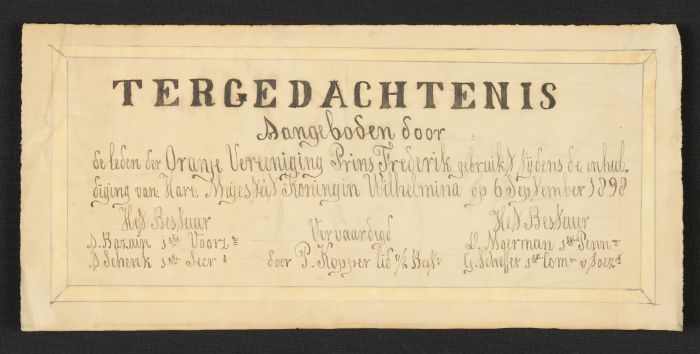 TERGEDACHTENIS
Aangeboden door
de leden der Oranje Vereeniging Prins Frederik gebruikt tijdens de inhul-
diging van Hare Majesteit Koningin Wilhelmina op 6 September 1898
Het Bestuur
D. Bazuijn 1ste Voorz
D Schenk 1ste Secr
Vervaardigd
door P. Kopper lid v/h Best
Het Bestuur
D. Moerman 1ste Penn
G. Scheffer 1ste Com